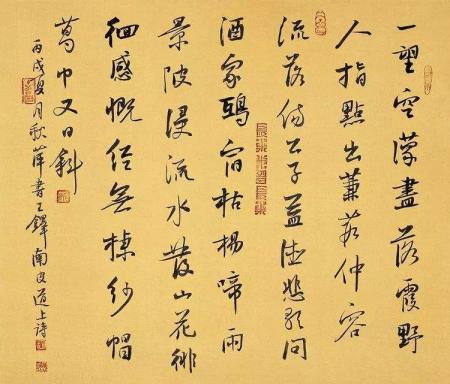 一望空濛盡落霞野
人指點出蒹葭仲容
流落傷公子益德悲歌問
酒家鵶宿枯楊啼雨
景陂漫流水發山花徘
徊感慨經無棣紗帽
葛巾又日斜
丙戌夏月秋萍書王鐸南皮道上詩